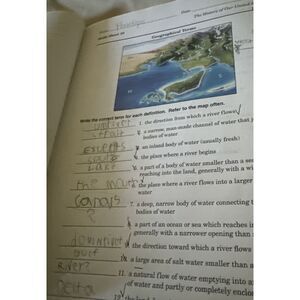 Name
Date
The History of Our United
Geographical Terms
Write the correct term for each definition. Refer to the map often.
upriver 1. the direction from which a river flows
strait 2. a narrow, man-made channel of water that j
bodies of water
3. an inland body of water (usually fresh)
4. the place where a river begins
Lake 5. a part of a body of water smaller than a sea
reaching into the land, generally with a wi
the mouth 6. the place where a river flows into a larger
water
Canals 7. a deep, narrow body of water connecting t
? bodies of water
8. a part of an ocean or sea which reaches in
generally with a narrower opening than
9. the direction toward which a river flows
gulf 10. a large area of salt water smaller than a
River? 11. a natural flow of water emptying into an
of water and partly or completely enclose
Delta